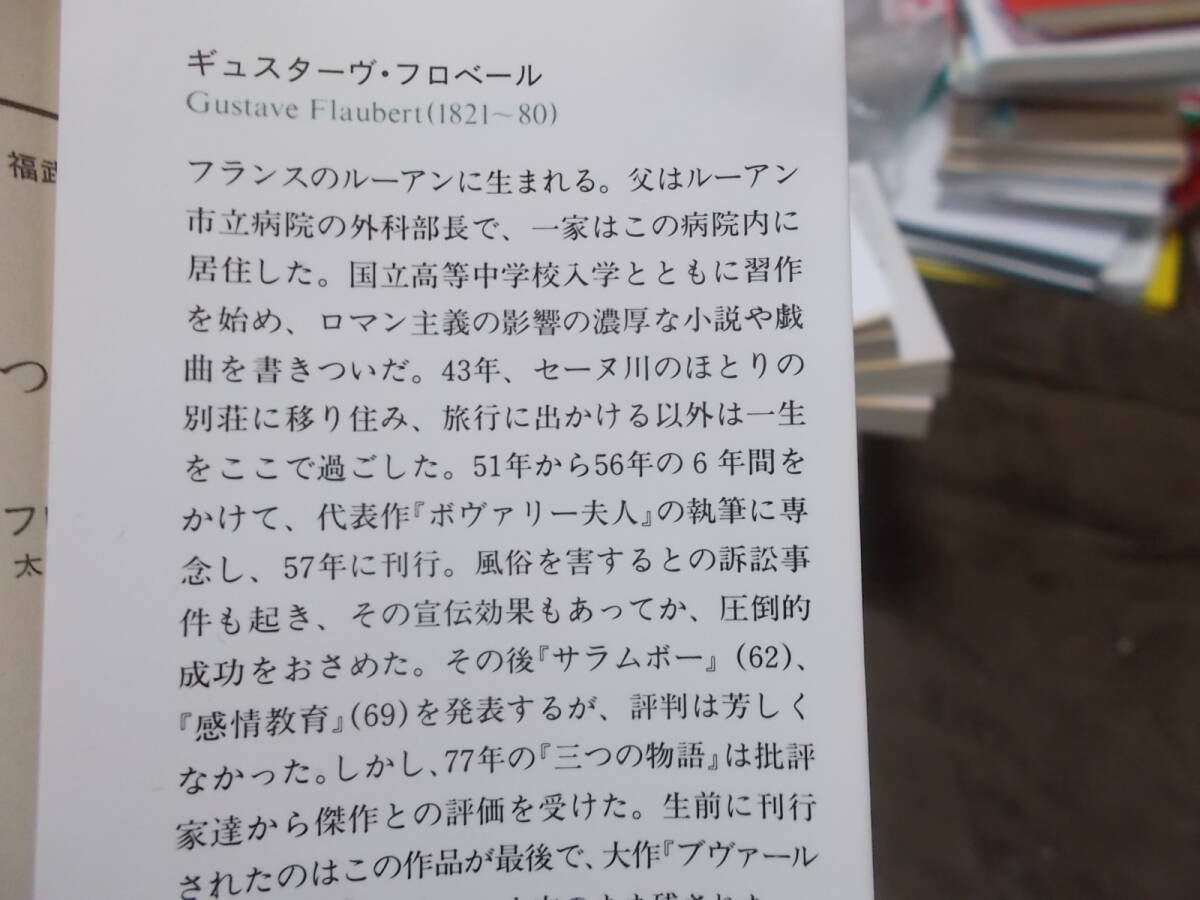 ギュスターヴ・フロベール
Gustave Flaubert(1821〜80)
フランスのルーアンに生まれる。父はルーアン
市立病院の外科部長で、一家はこの病院内に
居住した。国立高等中学校入学とともに習作
を始め、ロマン主義の影響の濃厚な小説や戯
曲を書きついだ。43年、セーヌ川のほとりの
別荘に移り住み、旅行に出かける以外は一生
をここで過ごした。51年から56年の6年間を
かけて、代表作『ボヴァリー夫人』の執筆に専
念し、57年に刊行。風俗を害するとの訴訟事
件も起き、その宣伝効果もあってか、圧倒的
成功をおさめた。その後『サラムボー』(62)、
『感情教育』(69)を発表するが、評判は芳しく
なかった。しかし、77年の『三つの物語』は批評
家達から傑作との評価を受けた。生前に刊行
されたのはこの作品が最後で、大作『ブヴァール
のまま残された
福武
つ
フ
太